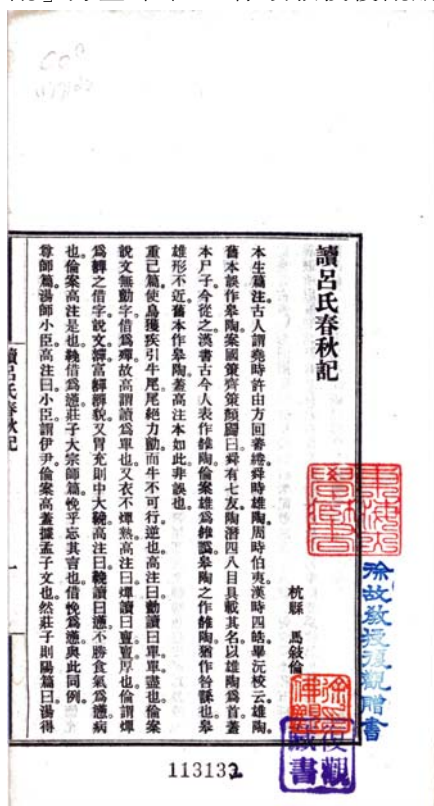 讀呂氏春秋記
杭縣 馬敍倫
本生篇注古人謂堯時許由方回善綣舜時雄陶周時伯夷漢時四皓畢沅校云雄陶
舊本誤作皋陶案國策齊策顏斶曰舜有七友陶潛四八目具載其名以雄陶爲首蓋
本尸子今從之漢書古今人表作雒陶倫案雄爲雒譌皋陶之作雒陶猶作咎繇也皋
雄形不近舊本作皋陶蓋高注本如此非誤也
重己篇使烏獲疾引牛尾尾絕力勯而牛不可行逆也高注曰勯讀曰單單盡也倫案
說文無勯字借爲殫故高謂讀爲單也又衣不燀熱高注曰燀讀曰亶亶厚也倫謂燀
爲繟之借字說文繟富繟繟貌又胃充則中大鞔高注曰鞔讀曰懣不勝食氣爲懣病
也倫案高注是也鞔借爲懣莊子大宗師篇悗乎忘其言也借悗爲懣與此同例
尊師篇湯師小臣高注曰小臣謂伊尹倫案高蓋據孟子文也然莊子則陽篇曰湯得
讀呂氏春秋記
一
徐故敎授復觀贈書
復觀
藏書
113132